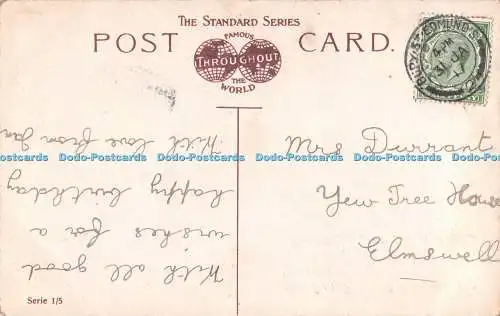 The Standard Series
POST CARD.
FAMOUS
THROUGHOUT
THE
WORLD
BURY ST EDMUNDS
4 PM
31 JA
17
With all good
wishes for a
happy birthday
With love from Jan
Mrs Durrant
Yew Tree House
Elmswell
Serie 1/5
Dodo-Postcards Dodo-Postcards Dodo-Postcards Dodo-Postcards Dodo-Postcards
Dodo-Postcards Dodo-Postcards Dodo-Postcards Dodo-Postcards Dodo-Postcards